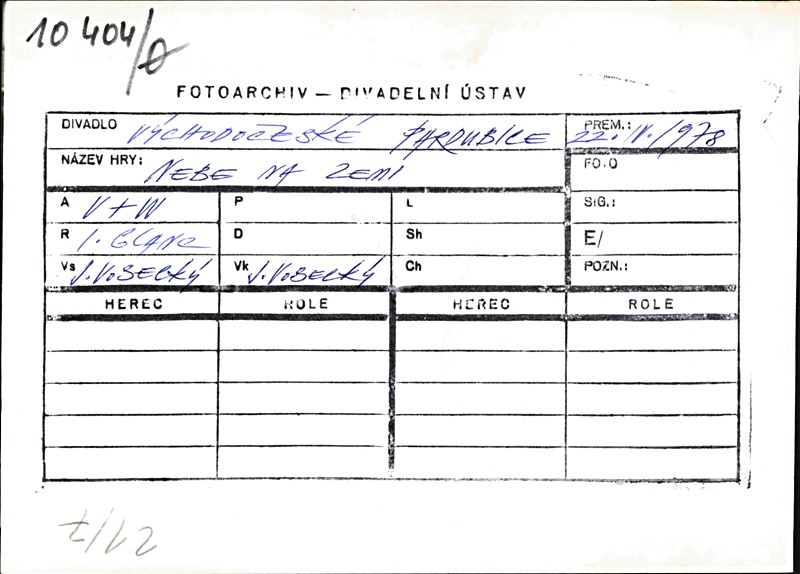 10 404/0
FOTOARCHIV — DIVADELNÍ ÚSTAV
DIVADLO VÝCHODOČESKÉ PARDUBICE PREM.: 22. IV. 1978
NÁZEV HRY: NEBE NA ZEMI FOTO
A V+W P L SIG.:
R I. GLANC D Sh E/
Vs J. VOSECKÝ Vk J. VOSECKÝ Ch POZN.:
HEREC ROLE HEREC ROLE